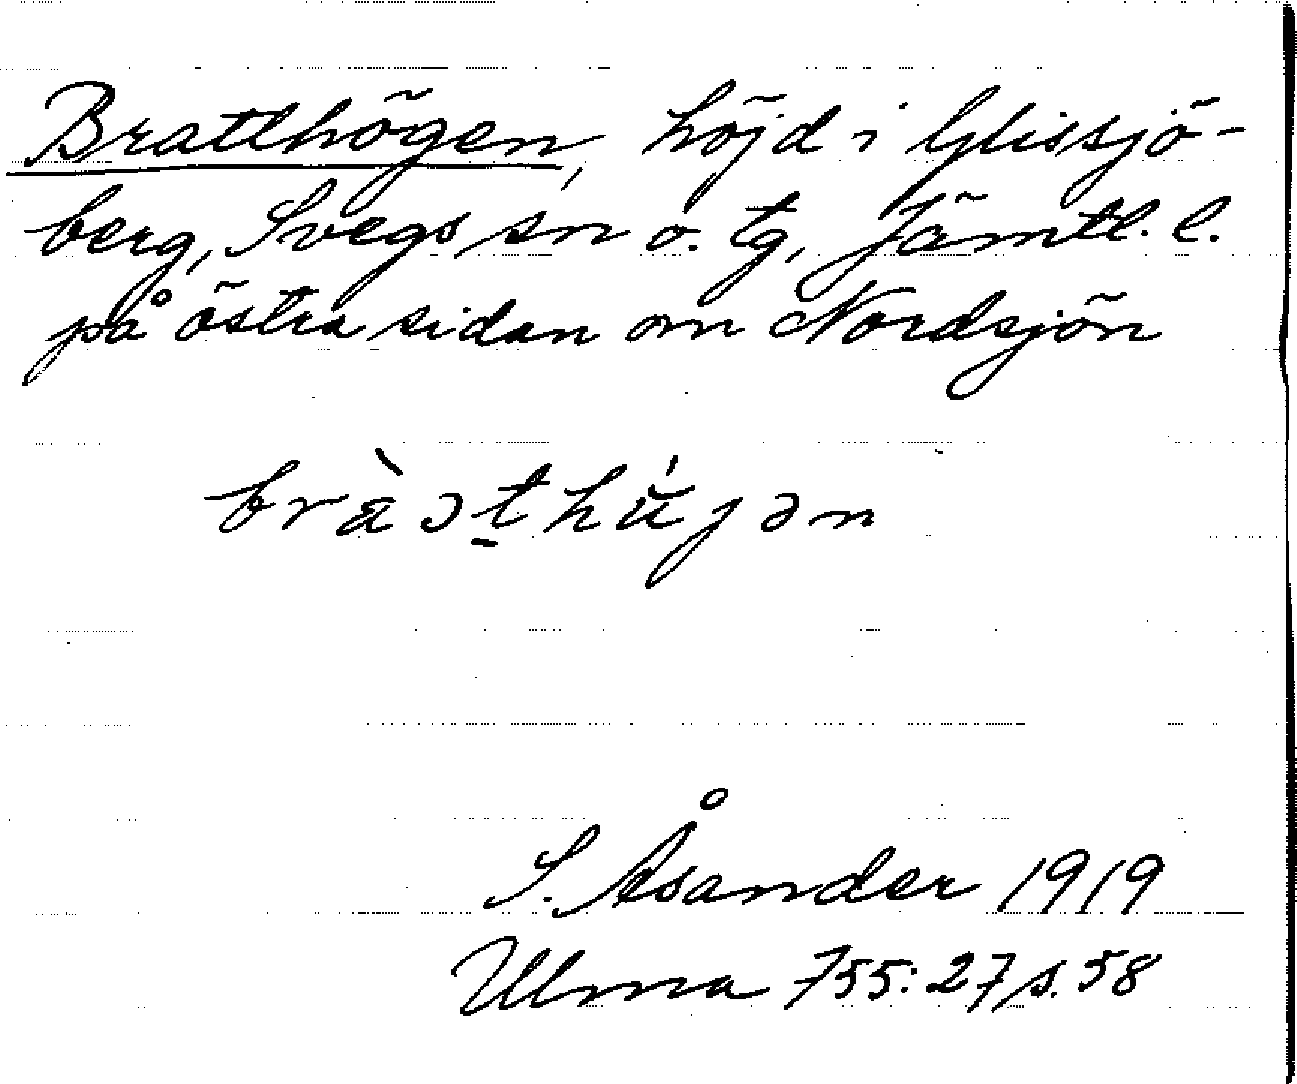 Bratthögen, höjd i Glissjö-
berg, Svegs sn o. tg, Jämtl. l.
på östra sidan om Nordsjön
bràɔt̠hű̀jən
S. Åsander 1919
Ulma 755:27 s. 58